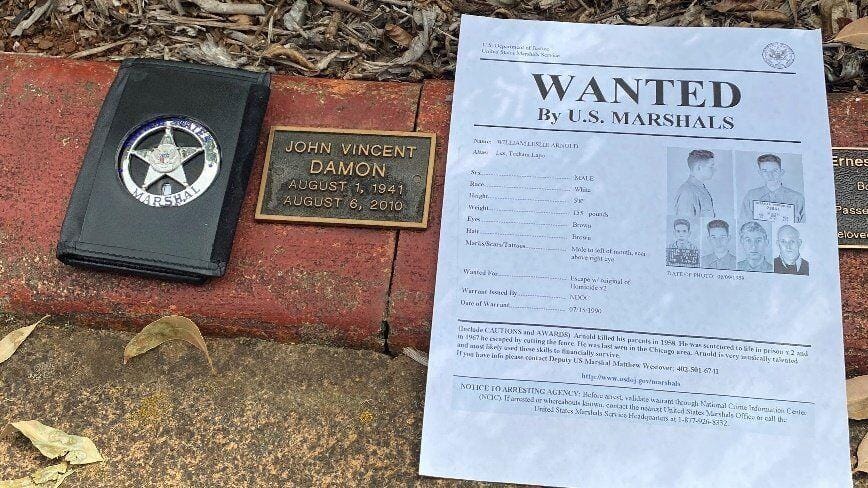 UNITED STATES
MARSHAL
JOHN VINCENT
DAMON
AUGUST 1, 1941
AUGUST 6, 2010
U.S. Department of Justice
United States Marshals Service
WANTED
By U.S. MARSHALS
Name: WILLIAM LESLIE ARNOLD
Alias: Les,
Sex MALE
Race White
Height
Weight 135 pounds
Eyes Brown
Hair Brown
Marks/Scars/Tattoos Mole to left of mouth, scar
above right eye
DATE OF PHOTO
Wanted For: Escape w/ original of
Homicide x2
Warrant Issued By NDOC
Date of Warrant: 07/15/1990
(Include CAUTIONS and AWARDS) Arnold killed his parents in 1958. He was sentenced to life in prison x 2 and
in 1967 he escaped by cutting the fence. He was last seen in the Chicago area. Arnold is very musically talented
and most likely used these skills to financially survive.
If you have info please contact Deputy US Marshal Matthew Westover: 402-501-6711
http://www.usdoj.gov/marshals
NOTICE TO ARRESTING AGENCY: Before arrest, validate warrant through National Crime Information Center
(NCIC). If arrested or whereabouts known, contact the nearest United States Marshals Office or call the
United States Marshals Service Headquarters at 1-877-926-8332.
Ernes
Passe
Belove